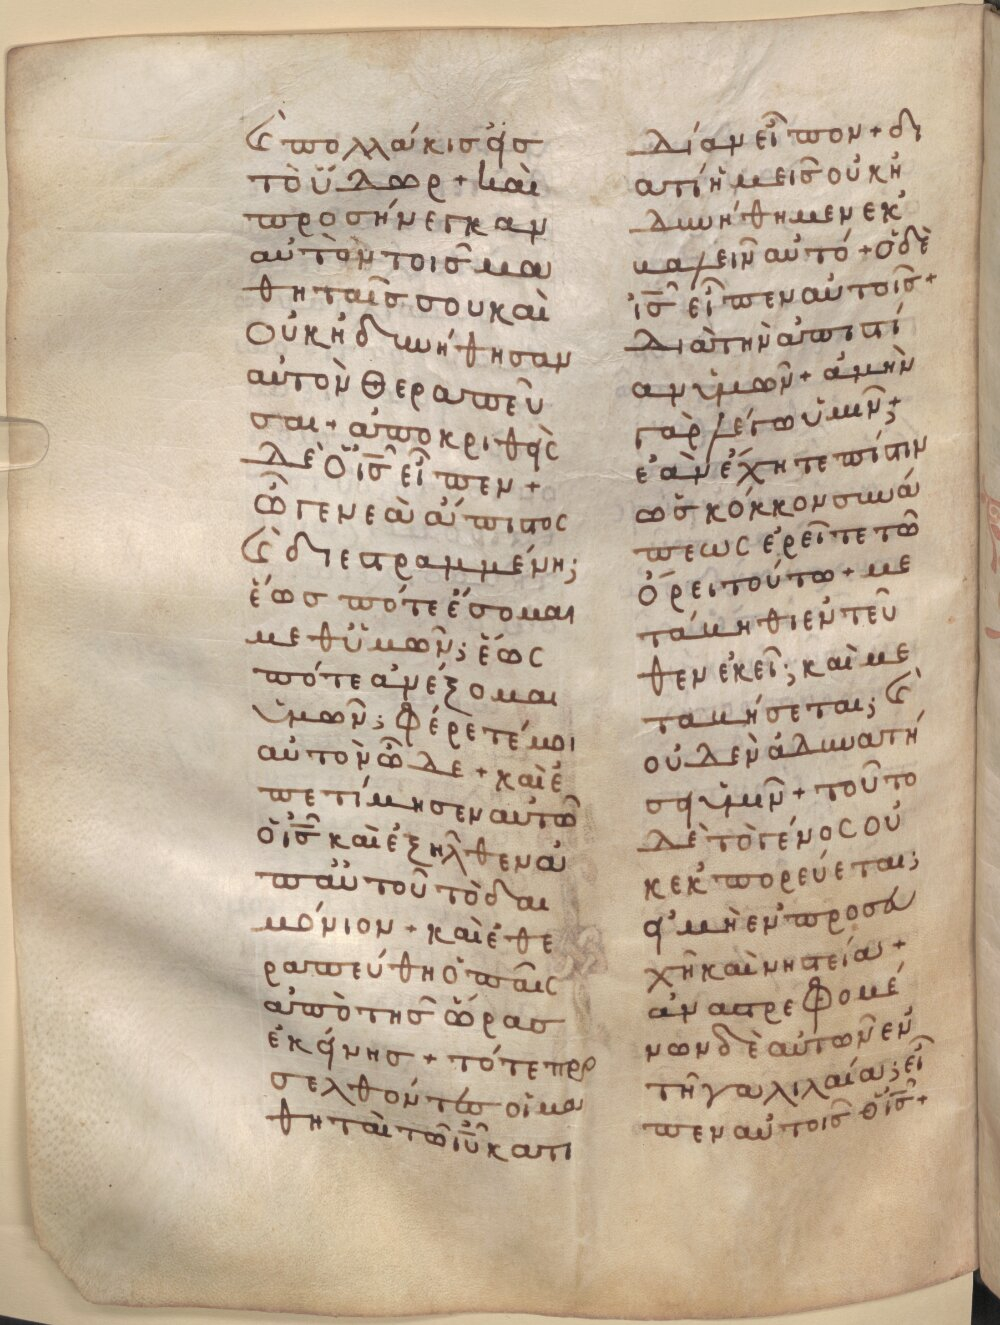 Ϛ̀ πολλάκισ εἰσ
τὸ ὕδωρ + καὶ
προσήνεγκαν
αὐτὸν τοῖσ μα
θηταῖσ σου καὶ
οὐκ ἠδυνήθησαν
αὐτὸν θεραπεῦ
σαι + ἀποκριθεὶς
δὲ ὁ ἰ̅σ̅ εἶπεν +
ὦ γενεὰ ἄπιστος
Ϛ̀ διεστραμμένη;
ἕωσ πότε ἔσομαι
μεθ ὑμῶν; ἕως
πότε ἀνέξομαι
ὑμῶν; φέρετέ μοι
αὐτὸν ὧδε + καὶ ἐ
πετίμησεν αὐτῶ
ὁ ἰ̅σ̅ καὶ ἐξῆλθεν ἀ
π αὐτοῦ τὸ δαι
μόνιον + καὶ ἐθε
ραπεύθη ὁ παῖς
ἀπὸ τῆσ ὥρασ
ἐκείνησ + τότε προ
σελθόντεσ οἱ μα
θηταὶ τῶ ἰ̅υ̅ κατ ι
δίαν εἶπον + δι
ατί ἡμεῖσ οὐκ ἠ
δυνήθημεν ἐκ
βαλεῖν αὐτό + ὁ δὲ
ἰ̅σ̅ εἶπεν αὐτοῖσ +
διὰ τὴν ἀπιστί
αν ὑμῶν + ἀμὴν
γὰρ λέγω ὑμῖν; +
ἐὰν ἔχητε πίστιν
ὡσ κόκκον σινά
πεως ἐρεῖτε τῶ
ὄρει τούτω + με
τάβηθι ἐντεῦ
θεν ἐκεῖ; καὶ με
ταβήσεται; Ϛ̀
οὐδὲν ἀδυνατή
σει ὑμῖν + τοῦτο
δὲ τὸ γένος οὐ
κ ἐκπορεύεται;
εἰ μὴ ἐν προσευ
χῆ καὶ νηστεία +
ἀναστρεφομέ
νων δὲ αὐτῶν ἐν
τῆ γαλιλαία; εἶ
πεν αὐτοῖσ ὁ ἰ̅σ̅ +